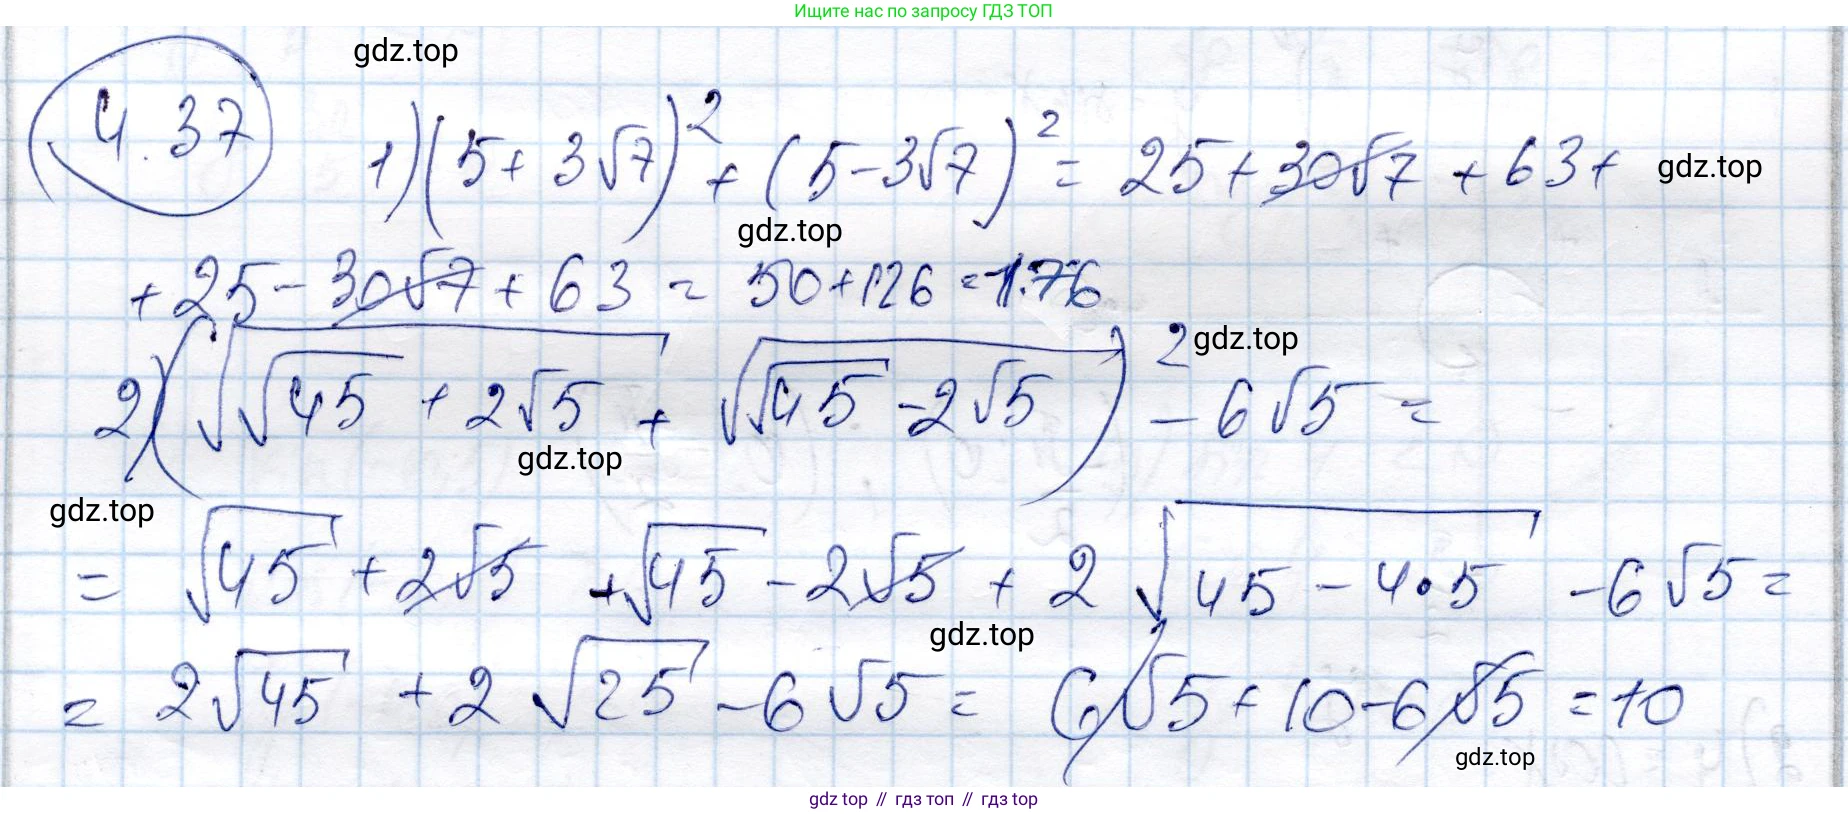 Ищите нас по запросу ГДЗ ТОП
gdz.top
4.37 1) (5 + 3√7)² + (5 - 3√7)² = 25 + 30√7 + 63 + gdz.top
gdz.top
+ 25 - 30√7 + 63 = 50 + 126 = 176
gdz.top
2) (√(√45 + 2√5) + √(√45 - 2√5))² - 6√5 =
gdz.top
gdz.top
= √45 + 2√5 + √45 - 2√5 + 2√(45 - 4·5) - 6√5 =
gdz.top
= 2√45 + 2√25 - 6√5 = 6√5 + 10 - 6√5 = 10
gdz.top
gdz top // гдз топ // гдз top